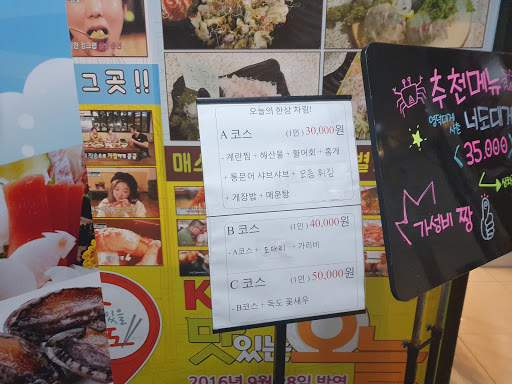 그곳!!
오늘의 한상 차림!
A 코스 (1인) 30,000원
- 계란찜 + 해산물 + 활어회 + 홍게
+ 통문어 샤브샤브 + 모듬 튀김
+ 게장밥 + 매운탕
B 코스 (1인) 40,000원
- A코스 + 가리비
C 코스 (1인) 50,000원
- B코스 + 독도 꽃새우
추천메뉴
영덕대게
사촌 너도대게
35,000
가성비 짱
맛있는 오늘
2016년 9월 28일 방영